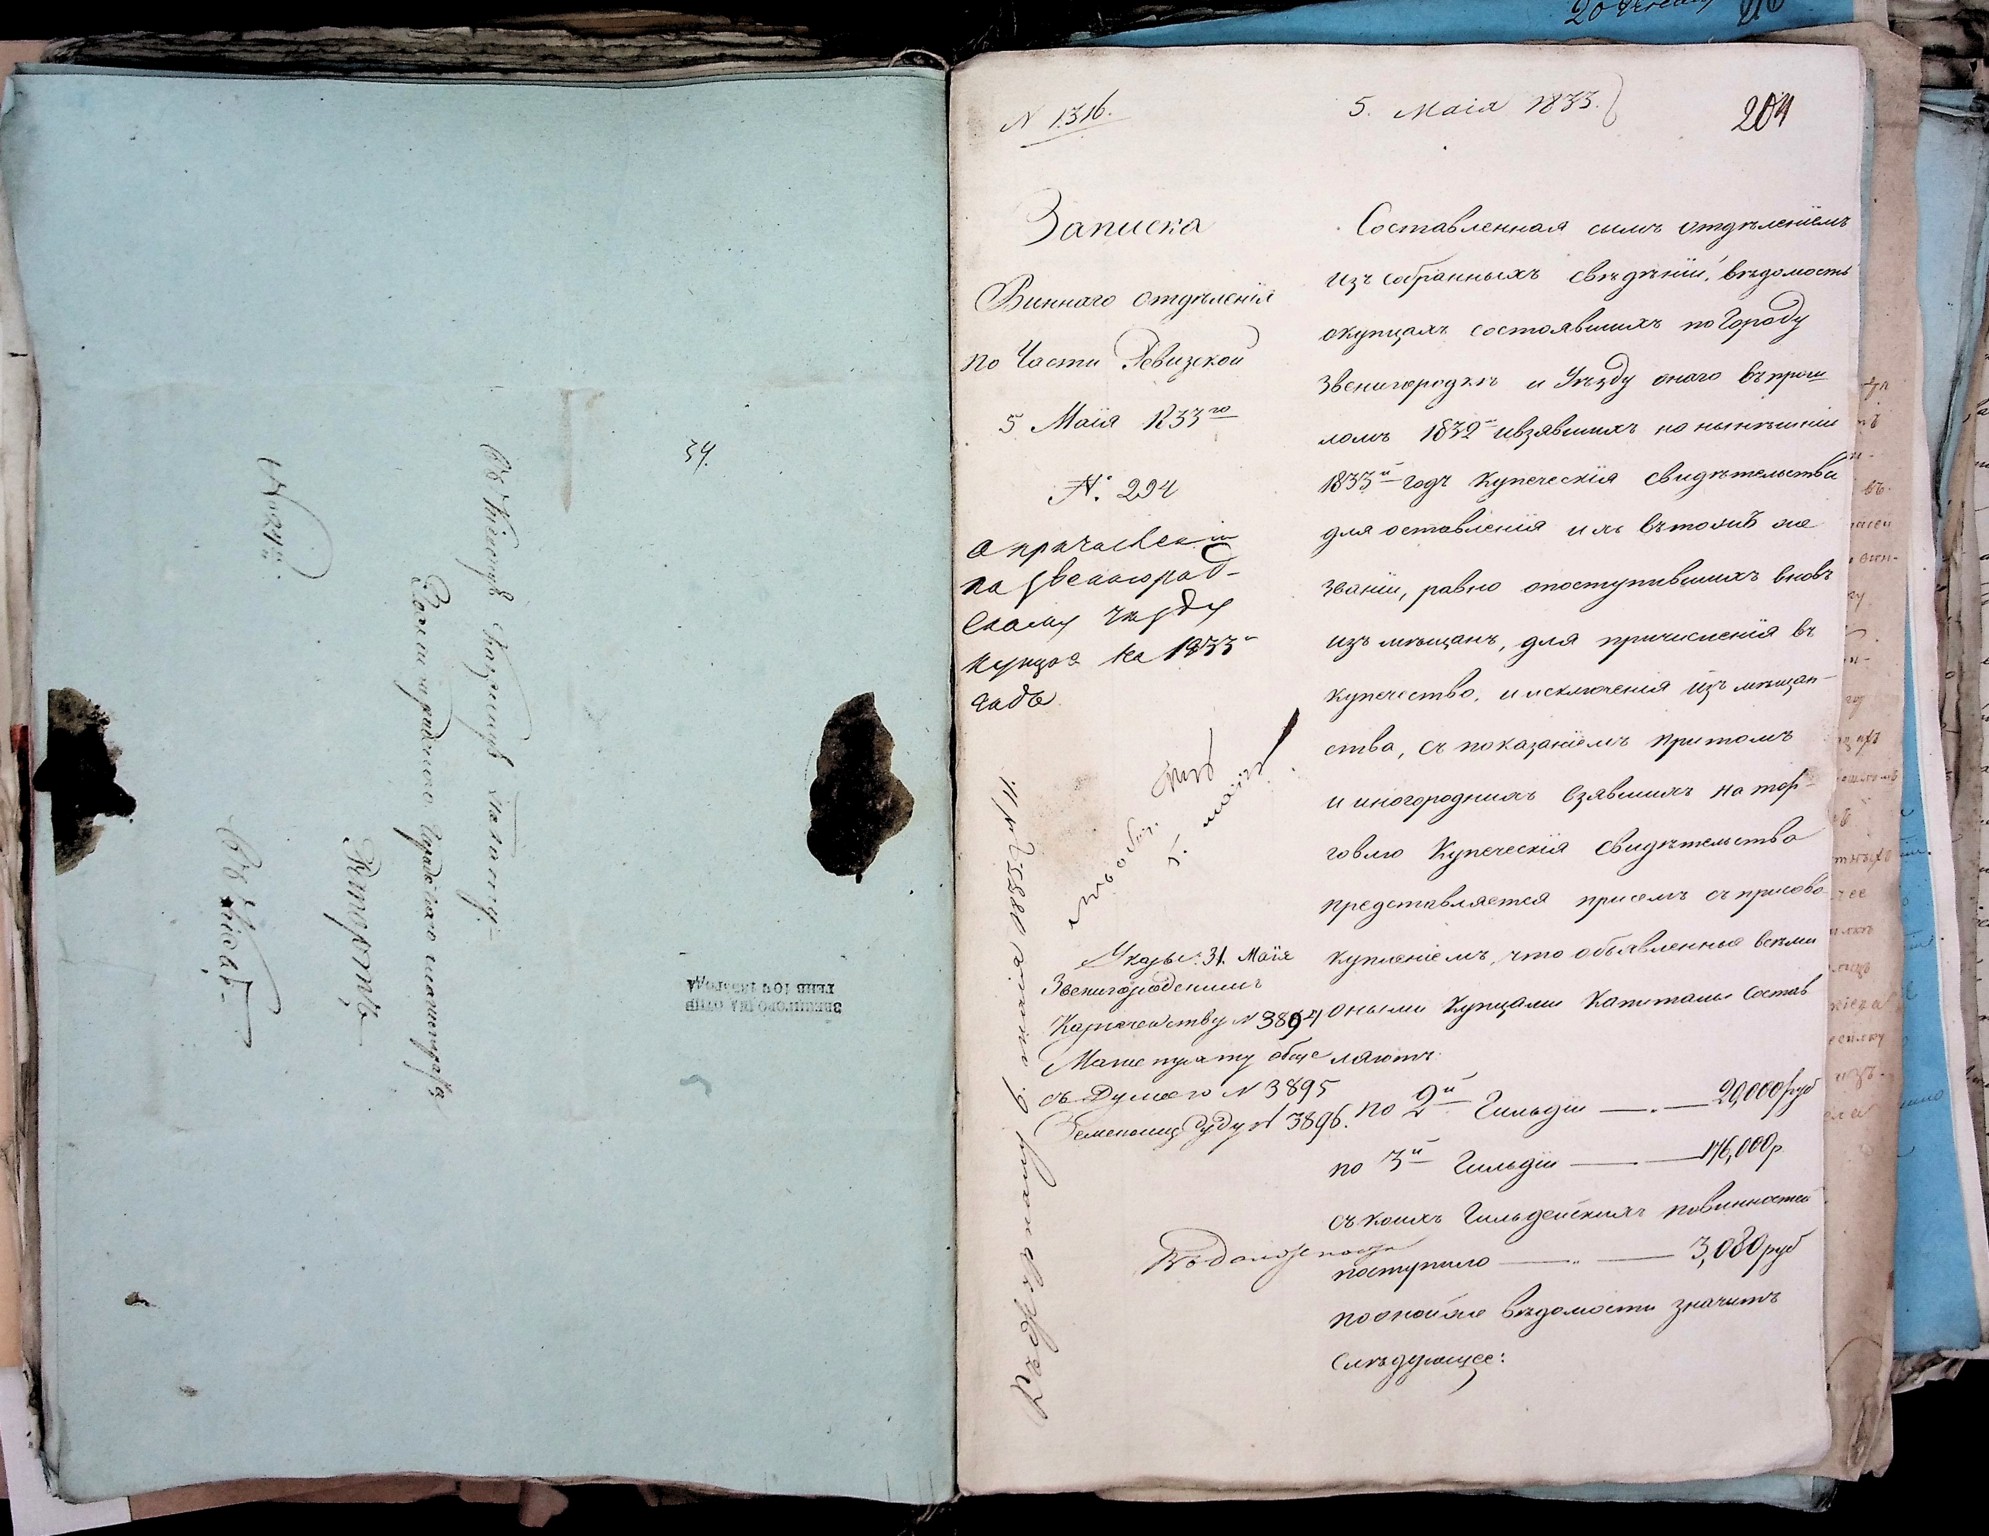 34.
Въ Кіевскую Казенную Палату.
Звенигородского Городского магистрата
Рапортъ
Нужное.
Въ Кіевъ
ЗВЕНИГОРОДКА
N 1316.
5. Маія 1833.
204
Записка
Виннаго отдѣленія
по Части Ревизской
5 Маія 1833го
№. 294
о причисленіи
по Звенигород-
скому уѣзду
купцов на 1833й
годъ
5. маія
Указы: 31. Маія
Звенигородскимъ
Казначейству N 3894
Магистрату обще
съ Думою N 3895
Земскому Суду N 3896.
Къ формальному 6. маія 1833 г. N
Составленная симъ отдѣленіемъ
изъ собранныхъ свѣдѣній, вѣдомость
окупцахъ состоявшихъ по Городу
Звенигородкѣ и Уѣзду онаго въ прош
ломъ 1832м ивзявшихъ на нынѣшній
1833й годъ Купеческія свидѣтельства
для оставленія ихъ въ томъ же
званіи, равно опоступившихъ вновь
изъ мѣщанъ, для причисленія въ
купечество, и исключенія изъ мѣщан-
ства, съ показаніемъ притомъ
и иногородныхъ взявшихъ на тор-
говлю Купеческія свидѣтельства
представляется присемъ съ присово-
купленіемъ, что объявленные всѣми
оными Купцами Капиталы состав
ляютъ
по 2й Гильдіи — 20,000 руб
по 3й Гильдіи — 176,000 р.
съ коихъ Гильдейскихъ повинностей
поступило — 3,080 руб
по оной же вѣдомости значитъ
слѣдующее: